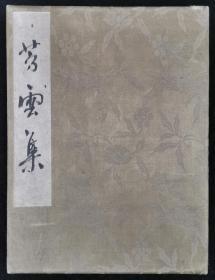 芳雲集